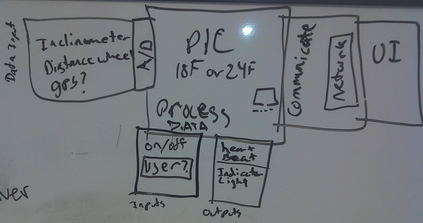 Data Input
Inclinometer
Distance wheel
gps?
A/D
PIC
18F or 24F
Process
DATA
Communicate
network
UI
on/off
User?
Inputs
heart
Beat
Indicator
Light
Outputs